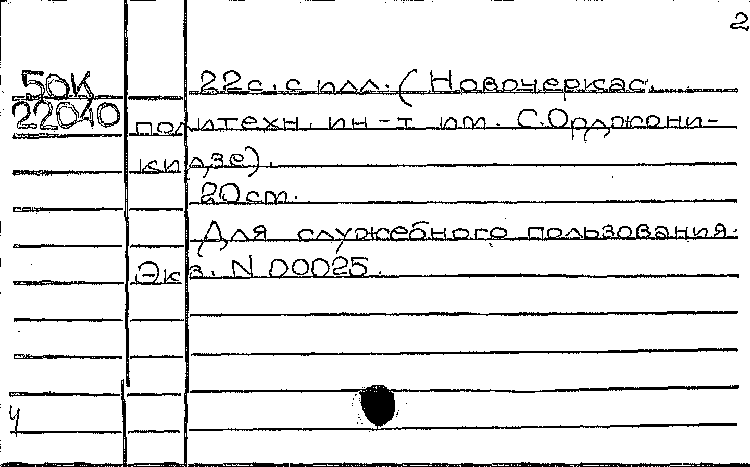 2
50К 22с. с илл. (Новочеркас.
22040 политехн. ин-т им. С. Орджони-
кидзе).
20см.
Для служебного пользования.
Экз. N 00025.
4